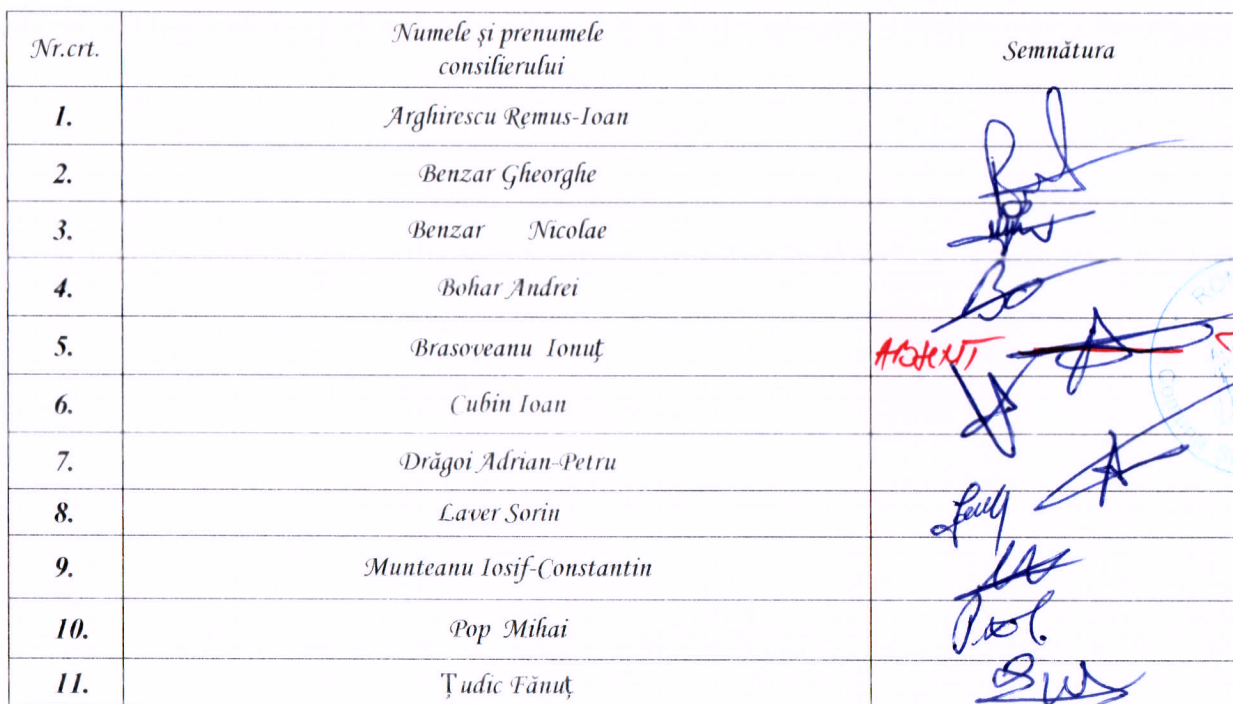 Nr.crt. Numele și prenumele consilierului Semnătura
1. Arghirescu Remus-Ioan
2. Benzar Gheorghe
3. Benzar Nicolae
4. Bohar Andrei
5. Brasoveanu Ionuț ABSENT
6. Cubin Ioan
7. Drăgoi Adrian-Petru
8. Laver Sorin
9. Munteanu Iosif-Constantin
10. Pop Mihai
11. Țudic Fănuț